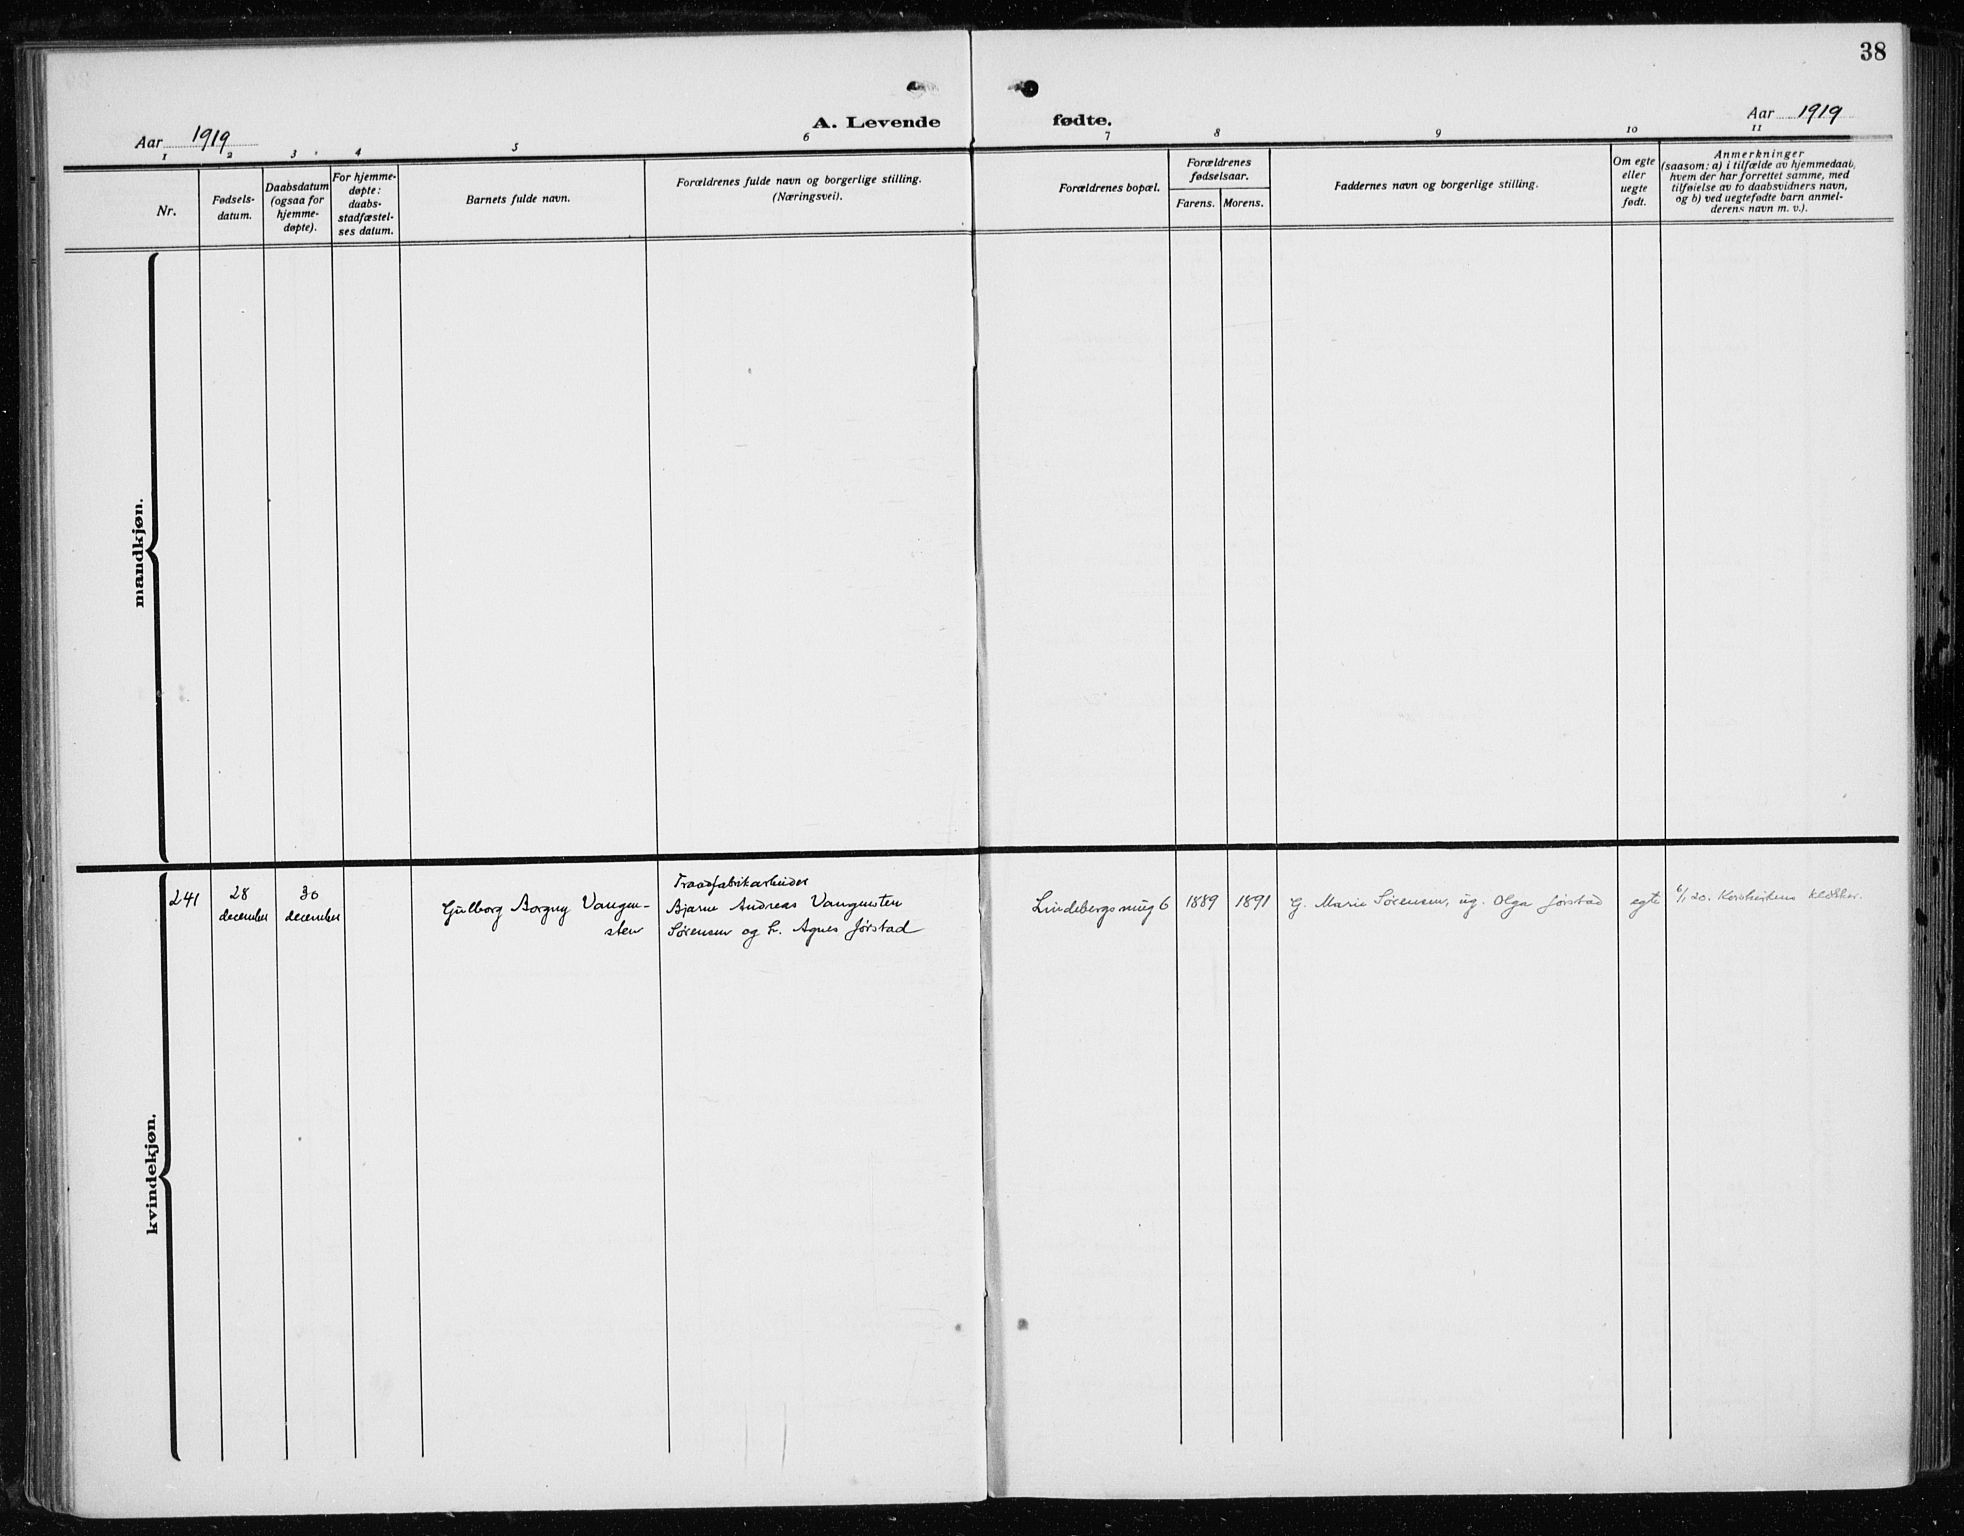 38
Aar 1919
A. Levende fødte.
Aar 1919
1 2 3 4 5 6 7 8 9 10 11
Nr.
Fødsels-
datum.
Daabsdatum
(ogsaa for
hjemme-
døpte).
For hjemme-
døpte:
daabs-
stadfæstel-
ses datum.
Barnets fulde navn.
Forældrenes fulde navn og borgerlige stilling.
(Næringsvei).
Forældrenes bopæl.
Forældrenes
fødselsaar.
Farens. Morens.
Faddernes navn og borgerlige stilling.
Om egte
eller
uegte
født.
Anmerkninger
(saasom: a) i tilfælde av hjemmedaab,
hvem der har forrettet samme, med
tilføielse av to daabsvidners navn,
og b) ved uegtefødte barn anmel-
derens navn m. v.).
mandkjøn.
kvindekjøn.
241
28
december
30
december
Gulborg Borgny Vangen-
sten
Traadfabrikarbeider
Bjarne Andreas Vangensten
Sørensen og h. Agnes Jørstad
Lindebergsmug 6
1889
1891
G. Marie Sørensen, ug. Olga Jørstad
egte
6/1 20. Korskirkens klokker.